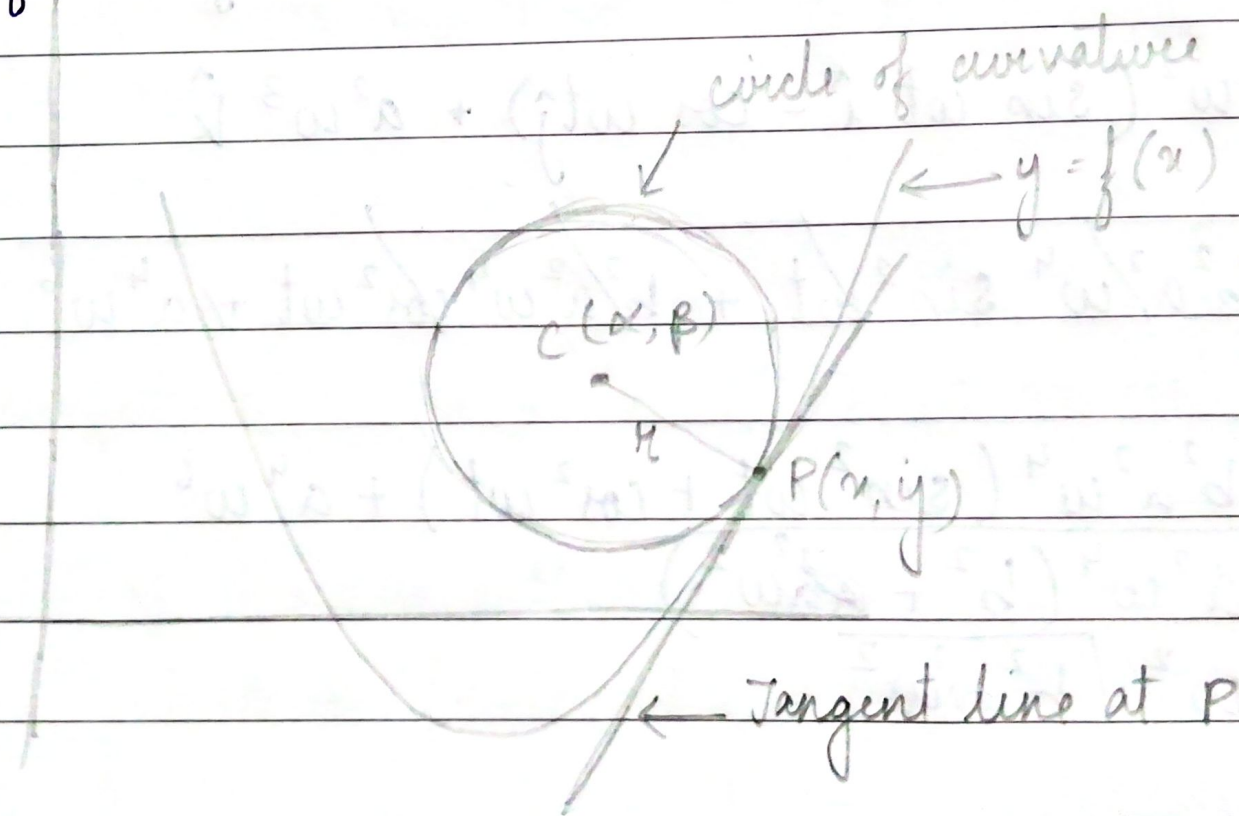 circle of curvature
y = f(x)
C(α, β)
r
P(x, y)
Tangent line at P